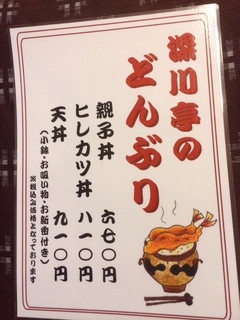 深川亭の
どんぶり
親子丼 六七〇円
ヒレカツ丼 八一〇円
天丼 九一〇円
(小鉢・お吸い物・お新香付き)
※税込み価格となっております